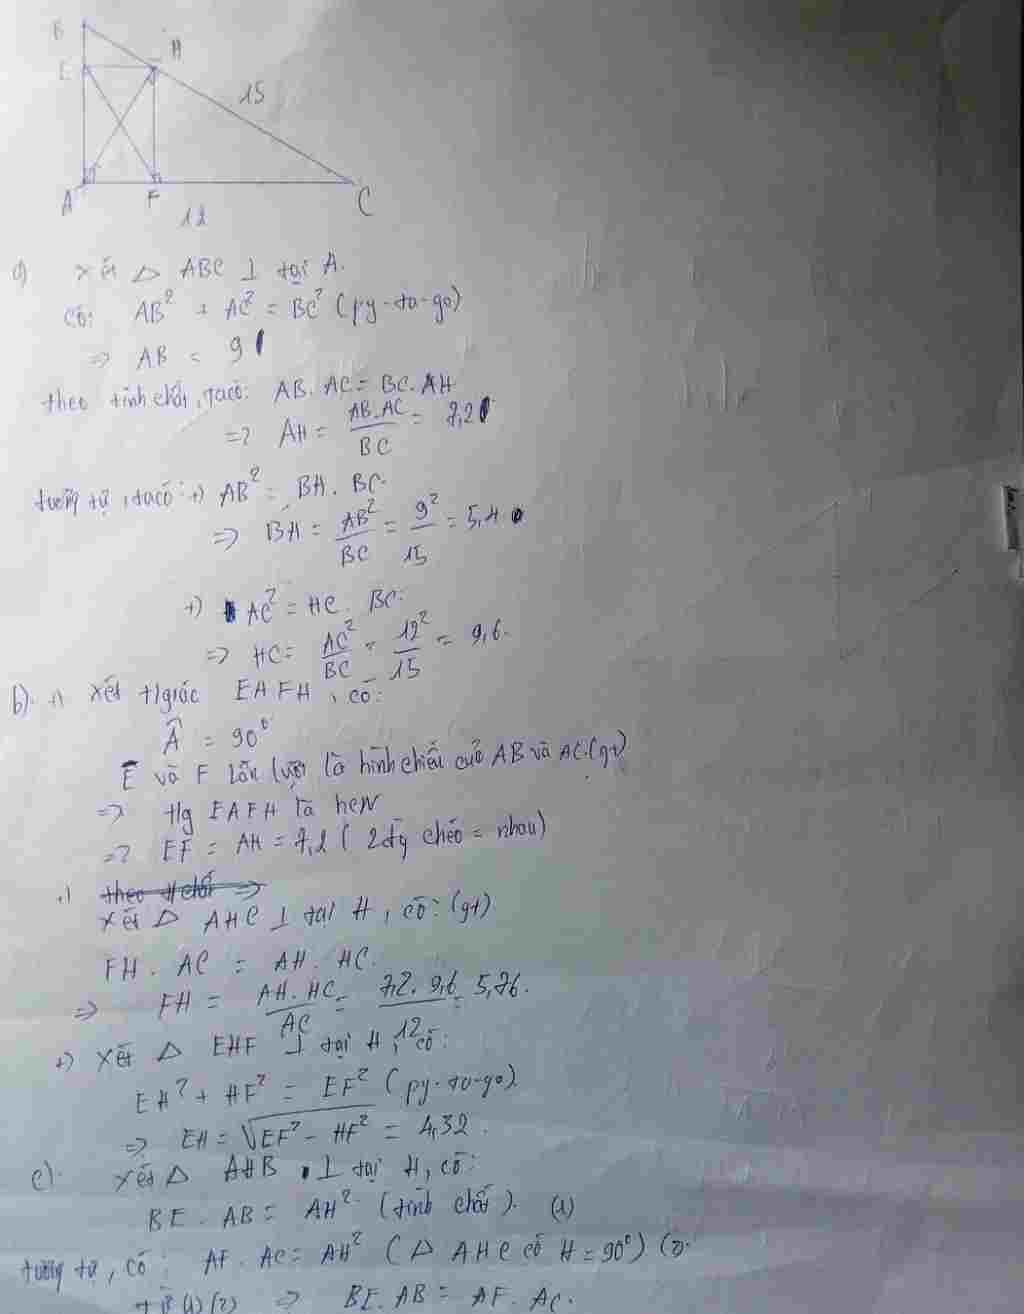 B
H
E
15
A
F
C
12
a) Xét △ ABC ⊥ tại A.
có: AB² + AC² = BC² (py-ta-go)
=> AB = 9
theo tính chất, ta có: AB. AC = BC. AH
=> AH = AB.AC/BC = 7,2
tương tự, ta có: +) AB² = BH. BC.
=> BH = AB²/BC = 9²/15 = 5,4
+) AC² = HC. BC.
=> HC = AC²/BC = 12²/15 = 9,6.
b). +) Xét t/giác EAFH, có:
Â = 90°
E và F lần lượt là hình chiếu của AB và AC.(gt)
=> t/g EAFH là hcn
=> EF = AH = 7,2 ( 2 đg chéo = nhau)
+) theo t/chất =>
xét △ AHC ⊥ tại H, có: (gt)
FH. AC = AH. HC.
=> FH = AH.HC/AC = 7,2. 9,6/12 = 5,76.
+) Xét △ EHF ⊥ tại H, có:
EH² + HF² = EF² (py-ta-go)
=> EH = √EF² - HF² = 4,32.
c). Xét △ AHB ⊥ tại H, có:
BE. AB = AH² (tính chất). (1)
tương tự, có: AF. AC = AH² ( △ AHC có H = 90°) (2).
từ (1)(2) => BE. AB = AF. AC.